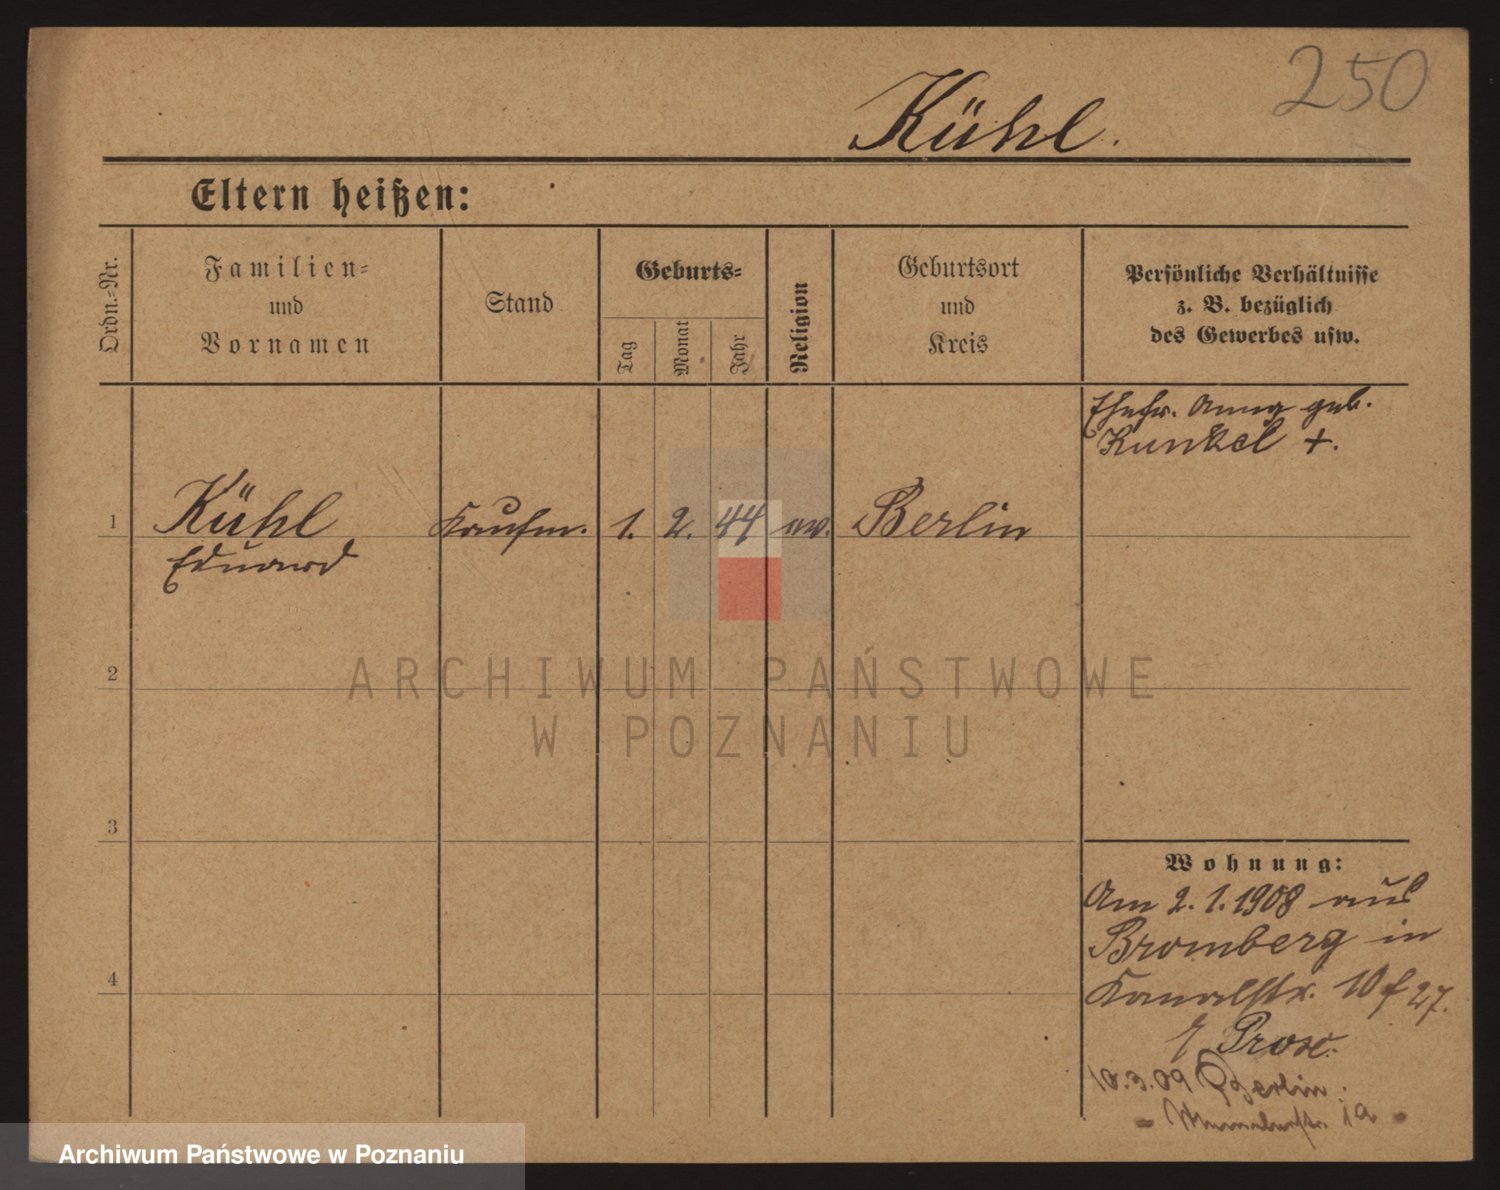 250
Kühl.
Eltern heißen:
Ordn.-Nr.
Familien-
und
Vornamen
Stand
Geburts-
Tag
Monat
Jahr
Religion
Geburtsort
und
Kreis
Persönliche Verhältnisse
z. B. bezüglich
des Gewerbes usw.
Ehefr. Anna geb.
Kunkel +.
1
Kühl
Eduard
Kaufm.
1.
2.
44
ev.
Berlin
2
3
4
ARCHIWUM PAŃSTWOWE
W POZNANIU
Wohnung:
Am 2.1.1908 aus
Bromberg in
Kanalstr. 10 f 27.
10.3.09 Berlin
1a
Archiwum Państwowe w Poznaniu